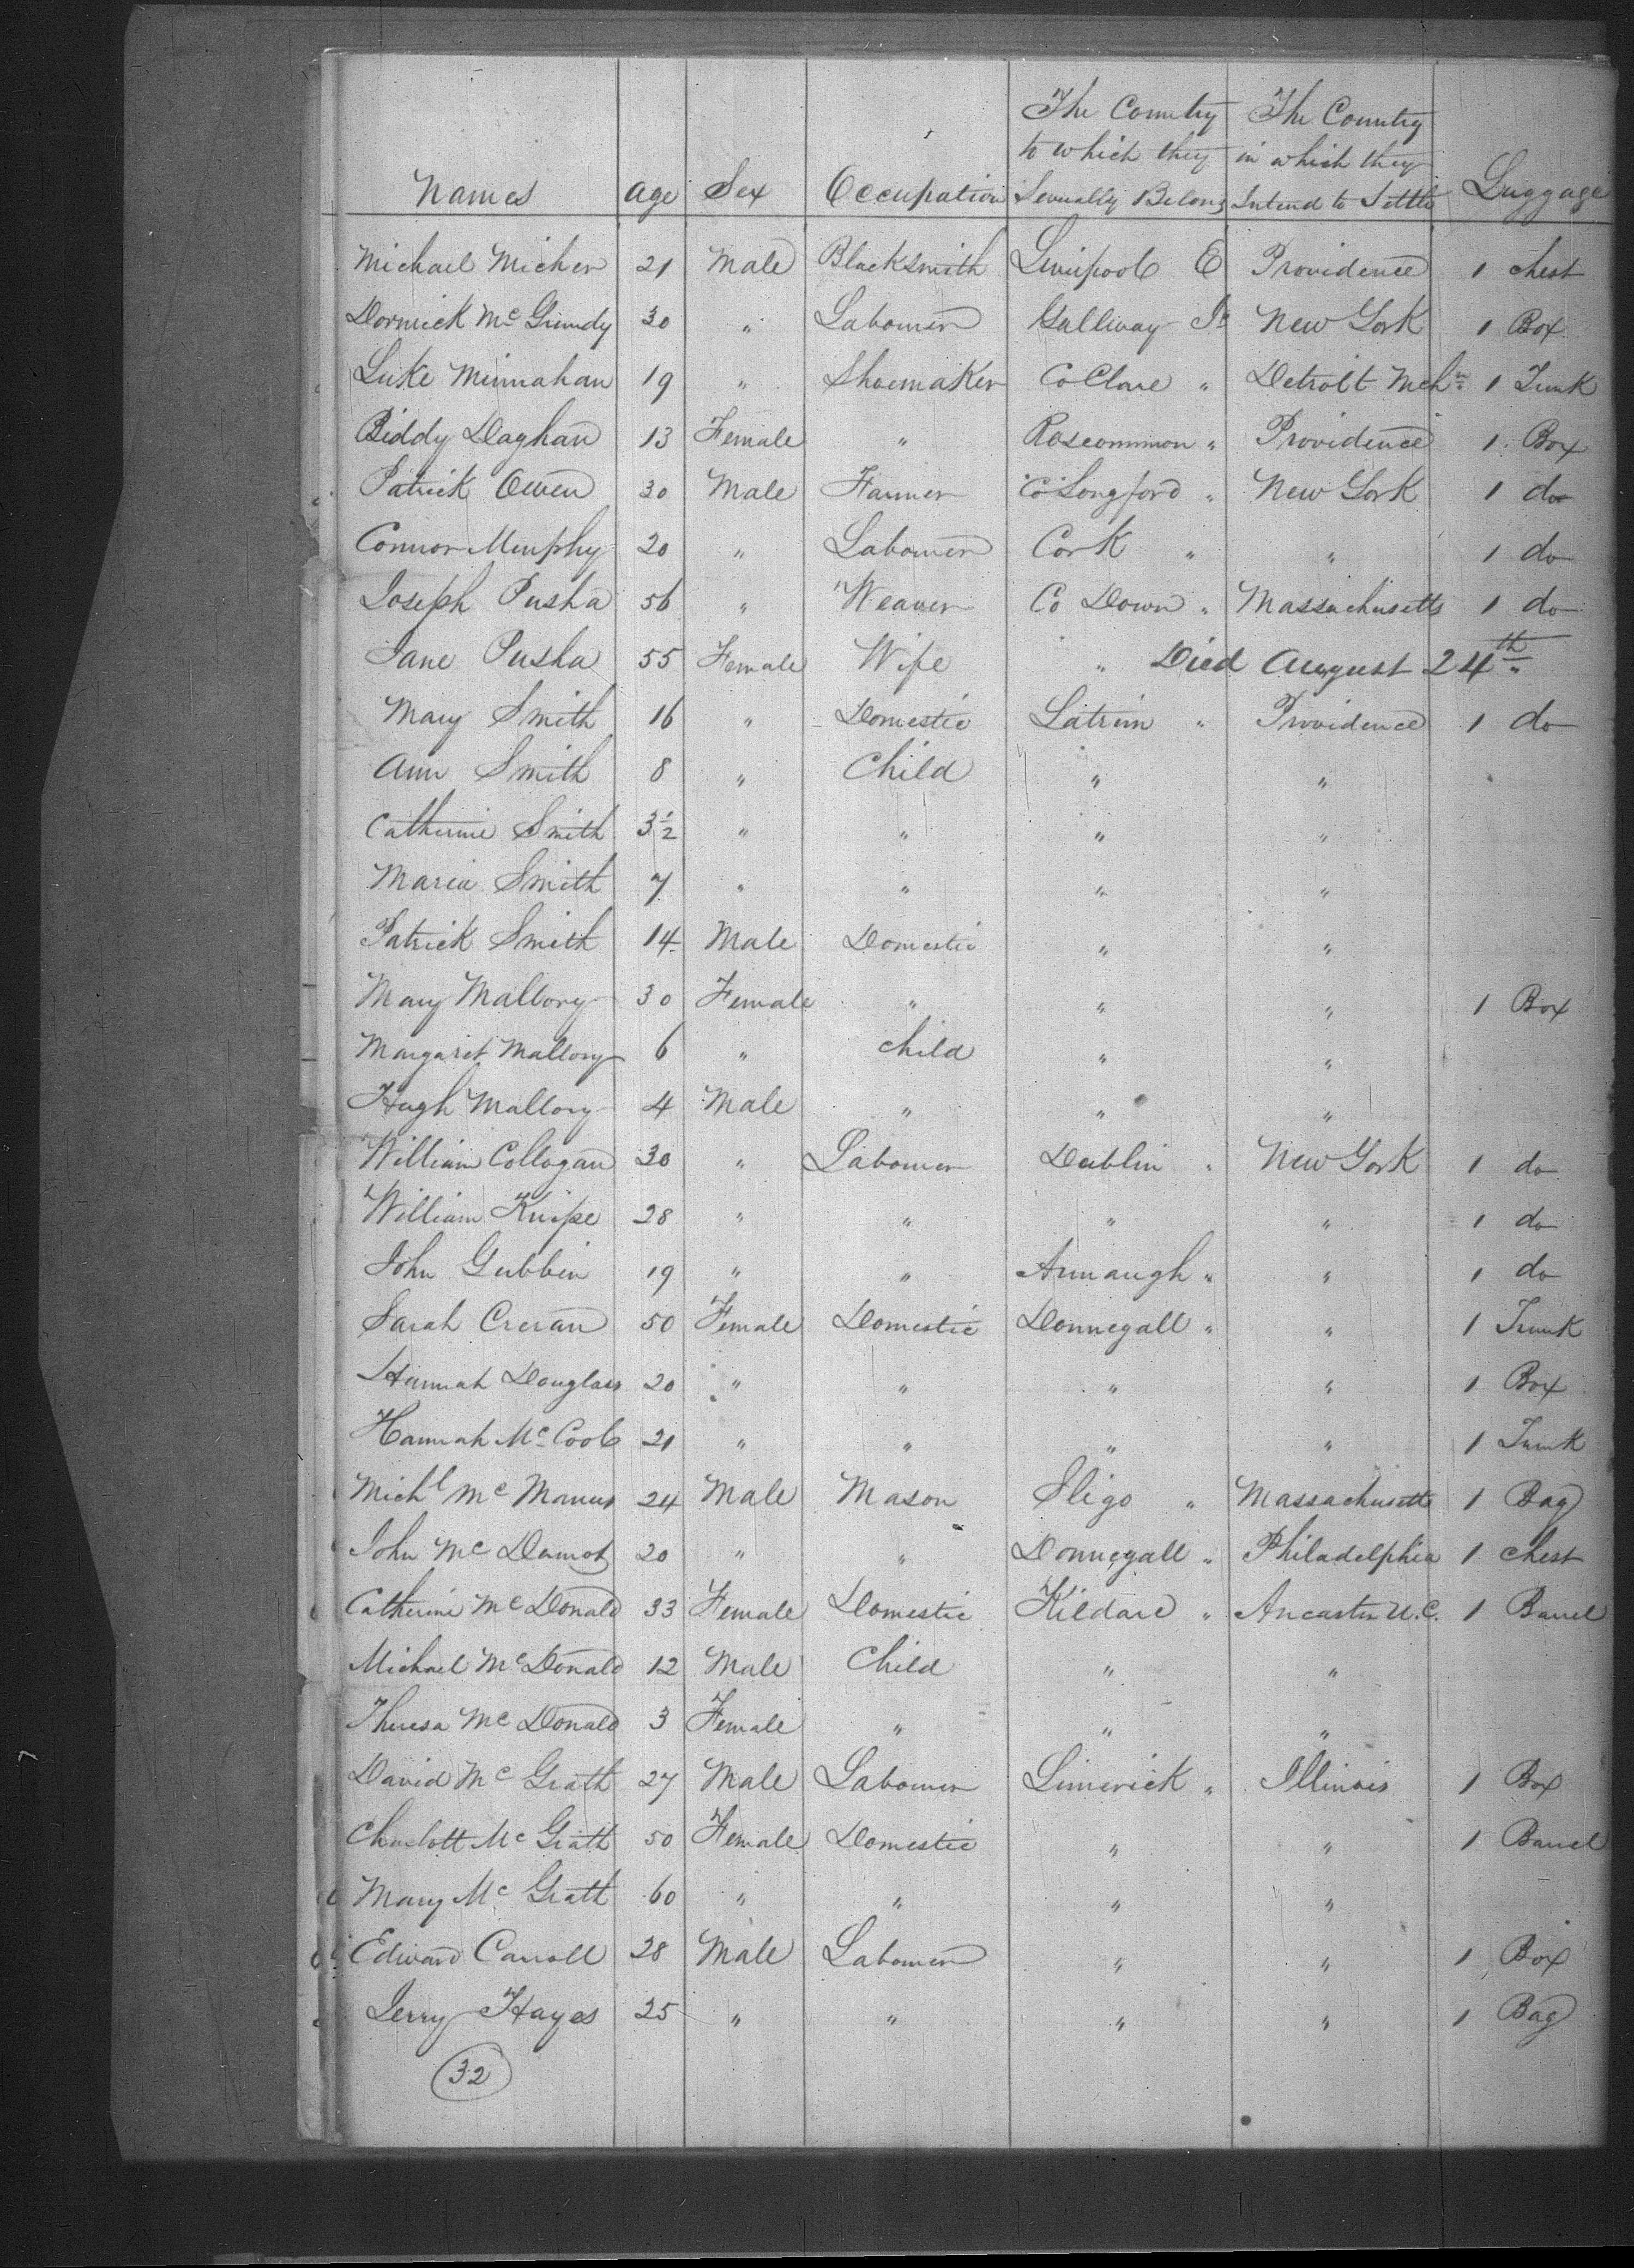 Names age Sex Occupation The Country to which they Severally Belong The Country in which they Intend to Settle Luggage
Michael Micher 21 Male Blacksmith Liverpool E Providence 1 chest
Dormick Mc Grundy 30 " Labourer Gallway Id New York 1 Box
Luke Minnahan 19 " Shoemaker Co Clare " Detroit Mchn 1 Trunk
Biddy Daghan 13 Female " Roscommon " Providence 1 Box
Patrick Owen 30 Male Farmer Co Longford " New York 1 do
Connor Murphy 20 " Labourer Cork " " 1 do
Joseph Pusha 56 " Weaver Co Down " Massachusetts 1 do
Jane Pusha 55 Female Wife " Died August 24th "
Mary Smith 16 " Domestic Latrim " Providence 1 do
Ann Smith 8 " Child " "
Catherine Smith 3½ " " " "
Maria Smith 7 " " " "
Patrick Smith 14 Male Domestic " "
Mary Mallory 30 Female " " " 1 Box
Margaret Mallory 6 " child " "
Hugh Mallory 4 Male " " "
William Collogan 30 " Labourer Dublin " New York 1 do
William Knipe 28 " " " " 1 do
John Gubbin 19 " " Armaugh " " 1 do
Sarah Creran 50 Female Domestic Donnegall " " 1 Trunk
Hannah Douglass 20 " " " " 1 Box
Hannah Mc Cool 21 " " " " 1 Trunk
Michl Mc Manus 24 Male Mason Sligo " Massachusetts 1 Bag
John Mc Dermot 20 " " Donnegall " Philadelphia 1 chest
Catherine Mc Donald 33 Female Domestic Kildare " Ancaster U.C. 1 Barrel
Michael Mc Donald 12 Male Child " "
Theresa Mc Donald 3 Female " " "
David Mc Grath 27 Male Labourer Limerick " Illinois 1 Box
Charlott Mc Grath 50 Female Domestic " " 1 Barrel
Mary Mc Grath 60 " " " "
Edward Carroll 28 Male Labourer " " 1 Box
Jerry Hayes 25 " " " " 1 Bag
32